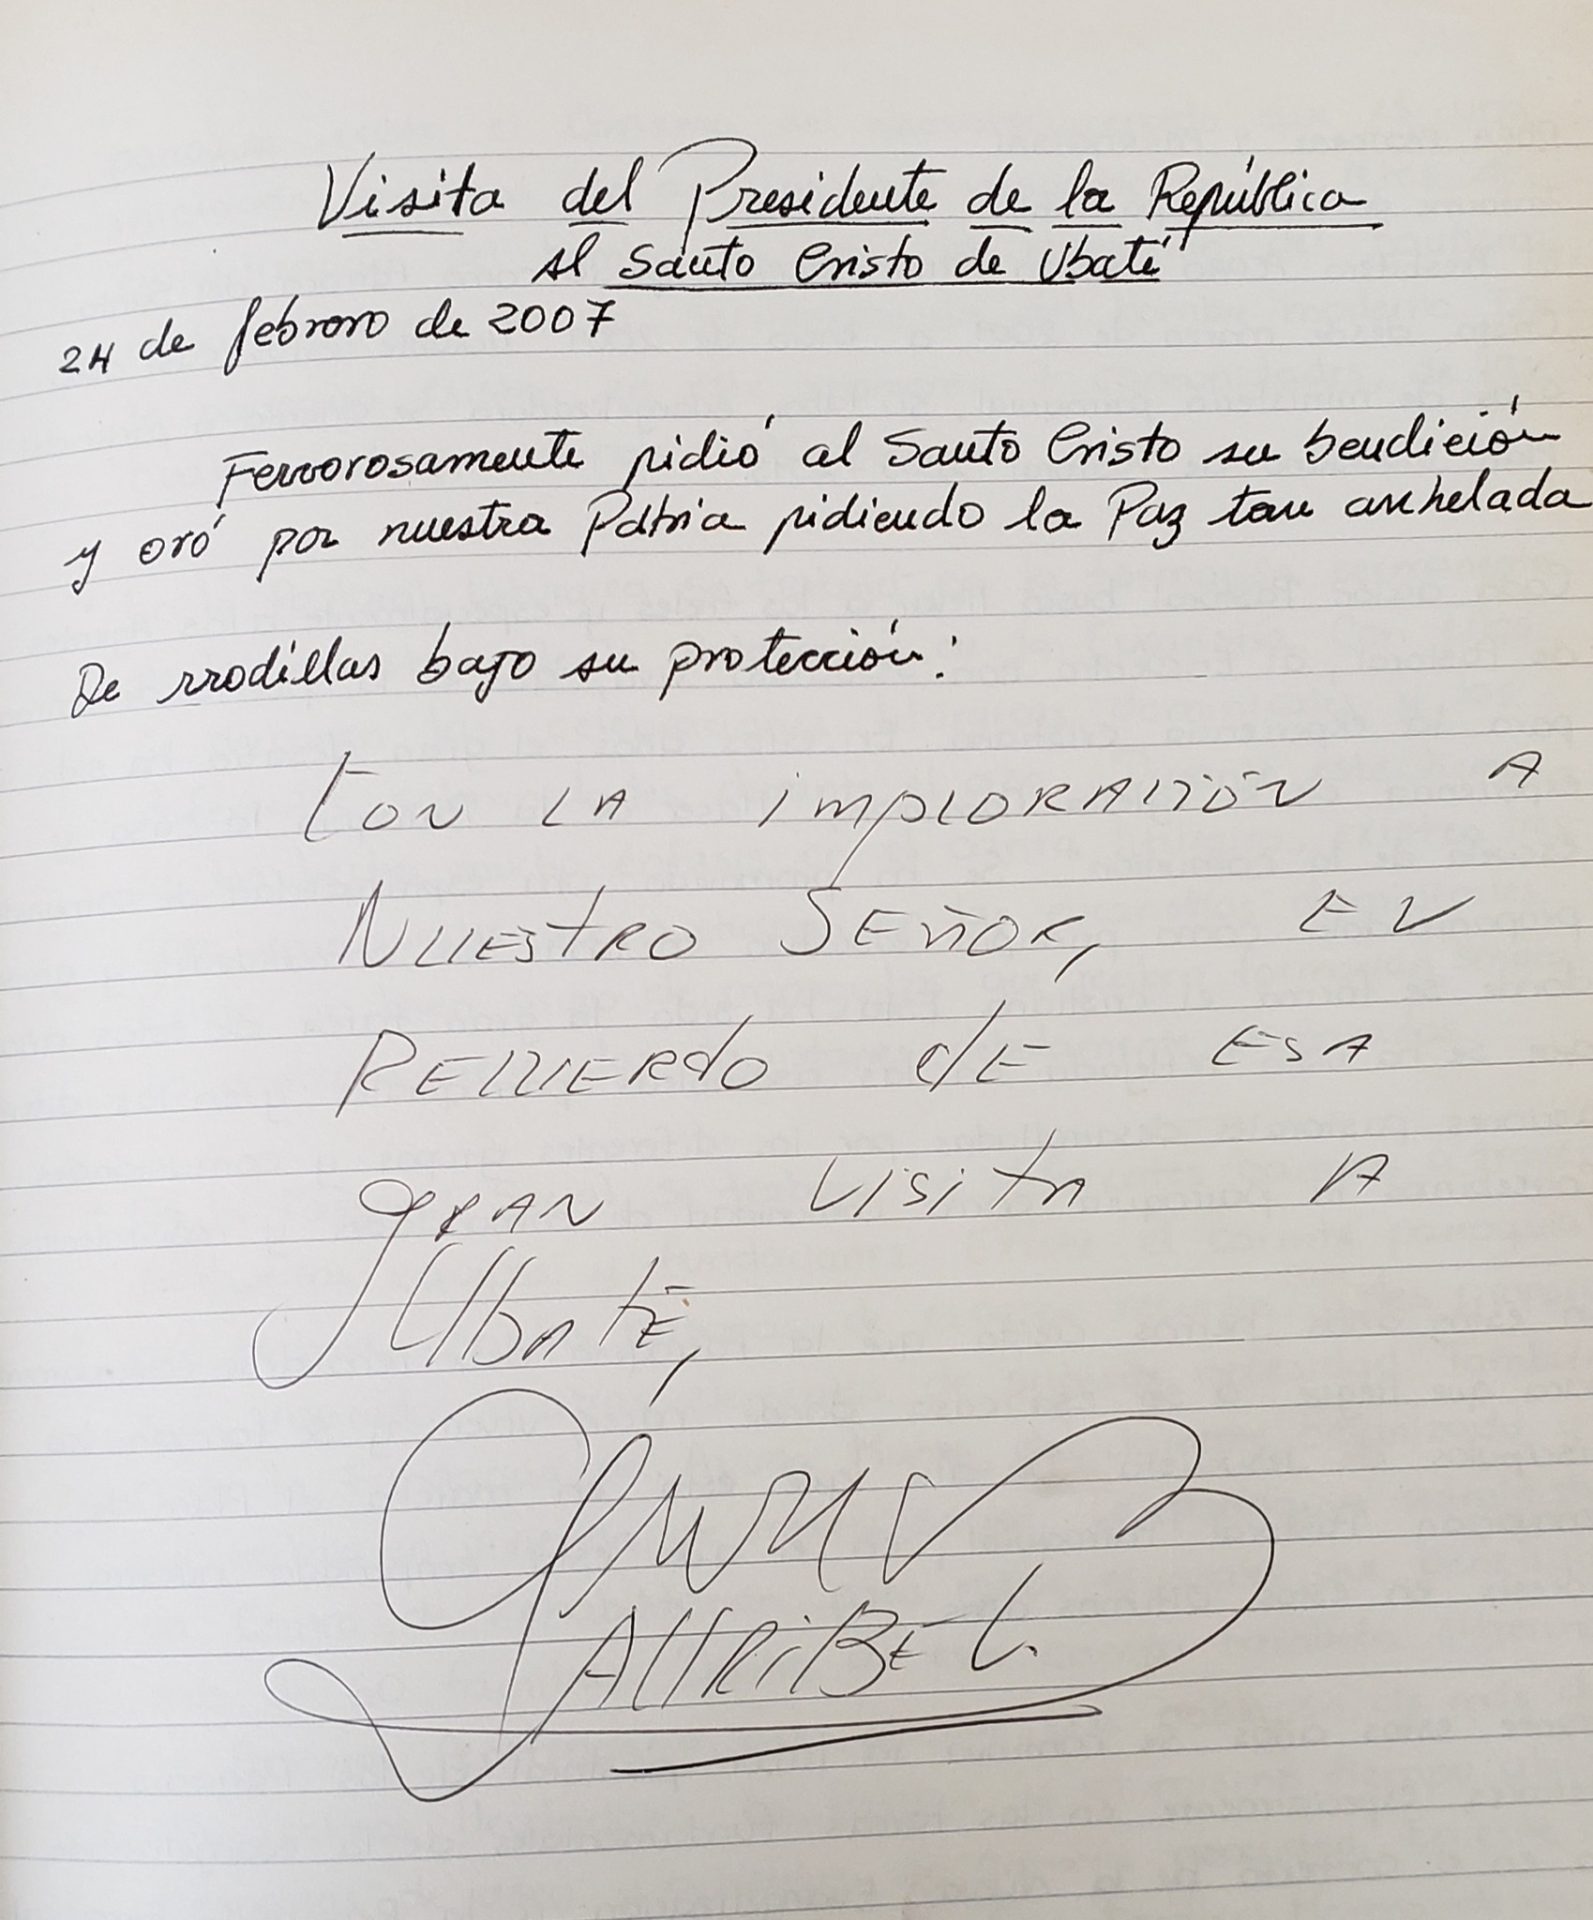 Visita del Presidente de la República
al Santo Cristo de Ubaté
24 de febrero de 2007
Fervorosamente pidió al Santo Cristo su bendición
y oró por nuestra Patria pidiendo la Paz tan anhelada
De rrodillas bajo su protección:
Con LA imploración A
Nuestro Señor, EN
Recuerdo de ESA
gran visita A
Ubaté,
AUribe V.